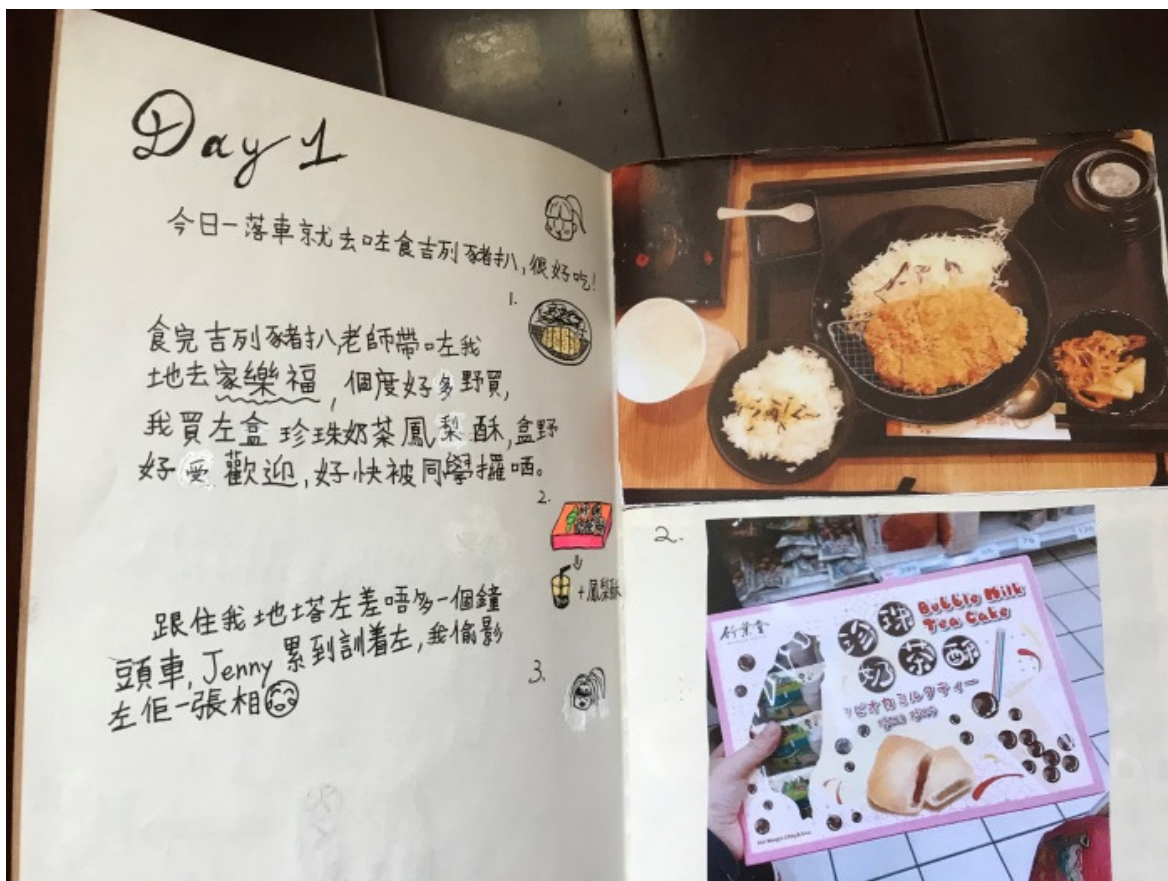 Day 1
今日一落車就去咗食吉列豬扒,很好吃!
1.
食完吉列豬扒,老師帶咗我
地去家樂福,個度好多野買,
我買左盒珍珠奶茶鳳梨酥,盒野
好受歡迎,好快被同學攞哂。
2.
+鳳梨酥
跟住我地塔左差唔多一個鐘
頭車,Jenny累到訓着左,我偷影
左佢一張相
3.
2.
竹葉堂
珍珠
奶茶酥
Bubble Milk
Tea Cake
タピオカミルクティー